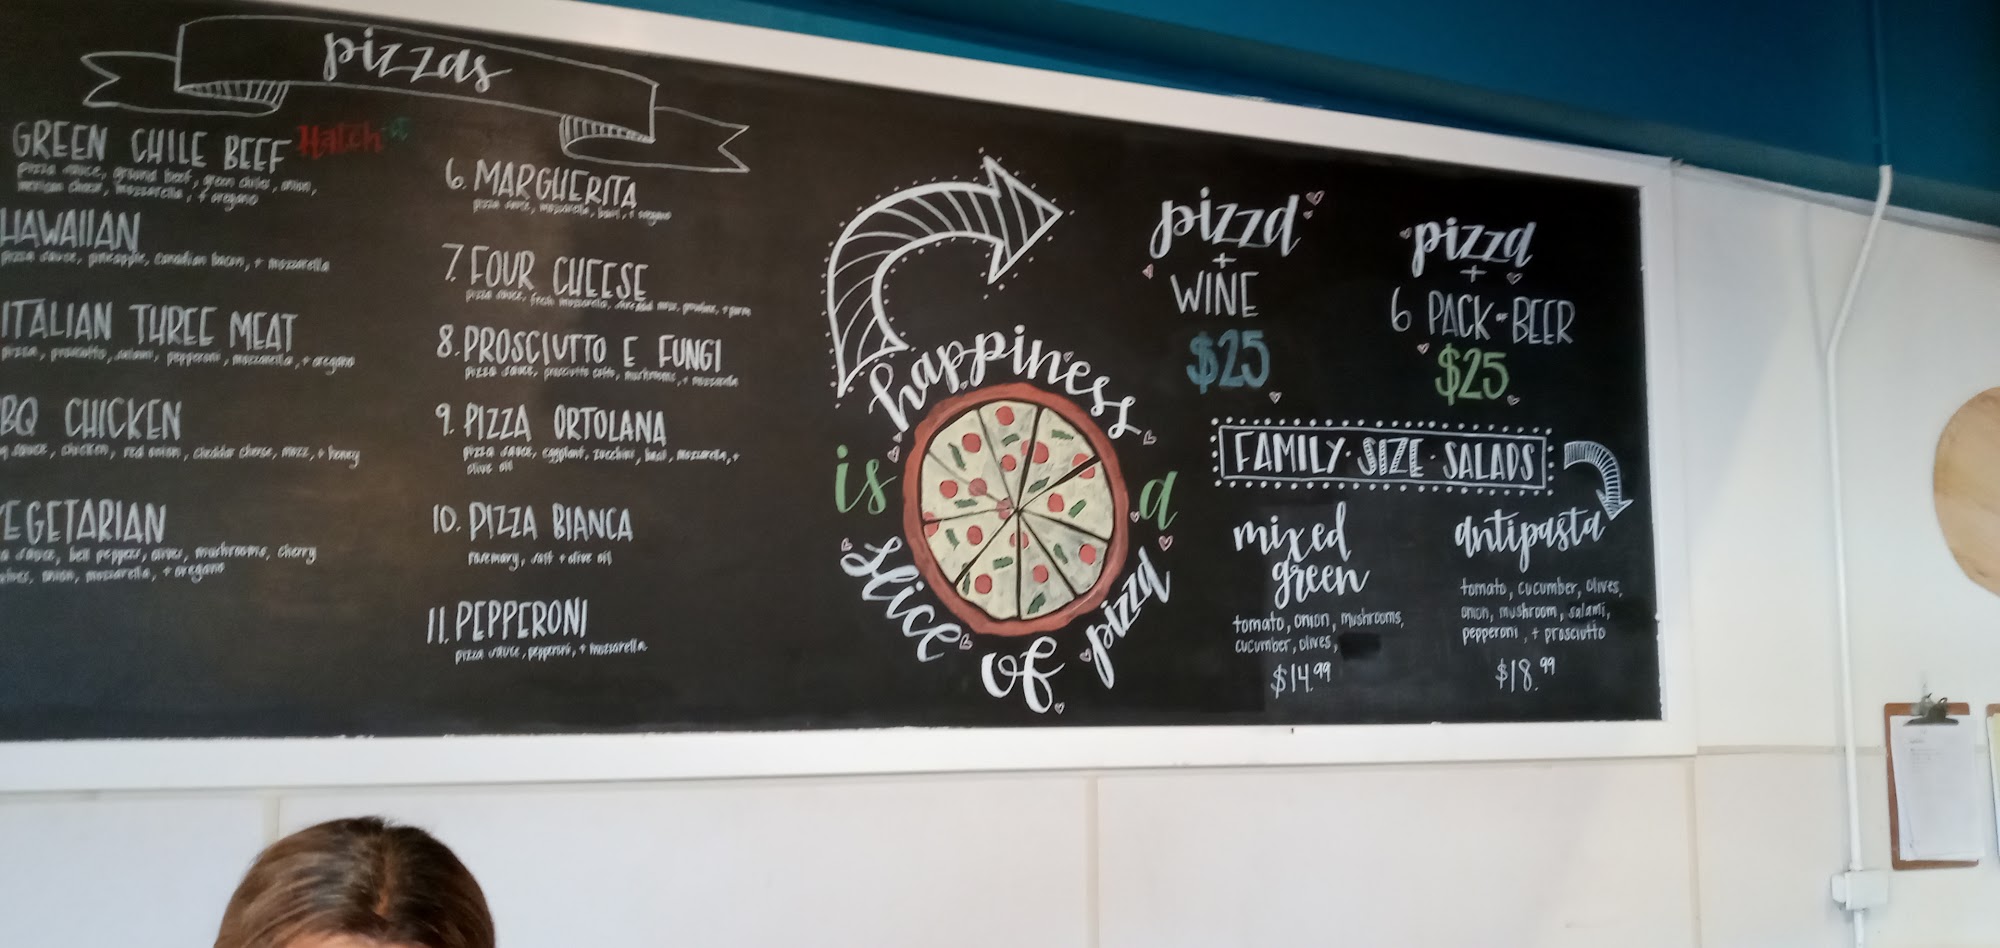 pizzas
GREEN CHILE BEEF Hatch
pizza sauce, ground beef, green chiles, onion,
mexican cheese, mozzarella, + oregano
HAWAIIAN
pizza sauce, pineapple, Canadian bacon, + mozzarella
ITALIAN THREE MEAT
pizza, prosciutto, salami, pepperoni, mozzarella, + oregano
BQ CHICKEN
sauce, chicken, red onion, cheddar cheese, mozz, + honey
EGETARIAN
sauce, bell peppers, olives, mushrooms, cherry
onion, mozzarella, + oregano
6. MARGHERITA
pizza sauce, mozzarella, basil, + oregano
7. FOUR CHEESE
pizza sauce, fresh mozzarella, shredded mozz, provolone, + parm
8. PROSCIUTTO E FUNGI
pizza sauce, prosciutto cotto, mushrooms, + mozzarella
9. PIZZA ORTOLANA
pizza sauce, eggplant, zucchini, basil, mozzarella, +
olive oil
10. PIZZA BIANCA
rosemary, salt + olive oil
11. PEPPERONI
pizza sauce, pepperoni, + mozzarella
happiness
is a
slice of pizza
pizza
+
WINE
$25
pizza
+
6 PACK OF BEER
$25
FAMILY · SIZE · SALADS
mixed
green
tomato, onion, mushrooms,
cucumber, olives,
$14.99
antipasta
tomato, cucumber, olives,
onion, mushroom, salami,
pepperoni, + prosciutto
$18.99